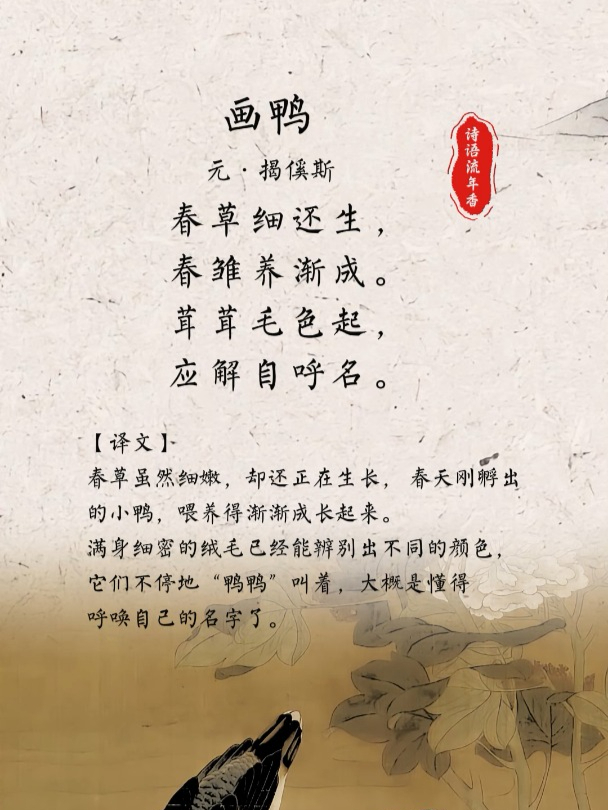 画鸭
元·揭傒斯
诗语流年香
春草细还生，
春雏养渐成。
茸茸毛色起，
应解自呼名。
【译文】
春草虽然细嫩，却还正在生长，春天刚孵出
的小鸭，喂养得渐渐成长起来。
满身细密的绒毛已经能辨别出不同的颜色，
它们不停地“鸭鸭”叫着，大概是懂得
呼唤自己的名字了。